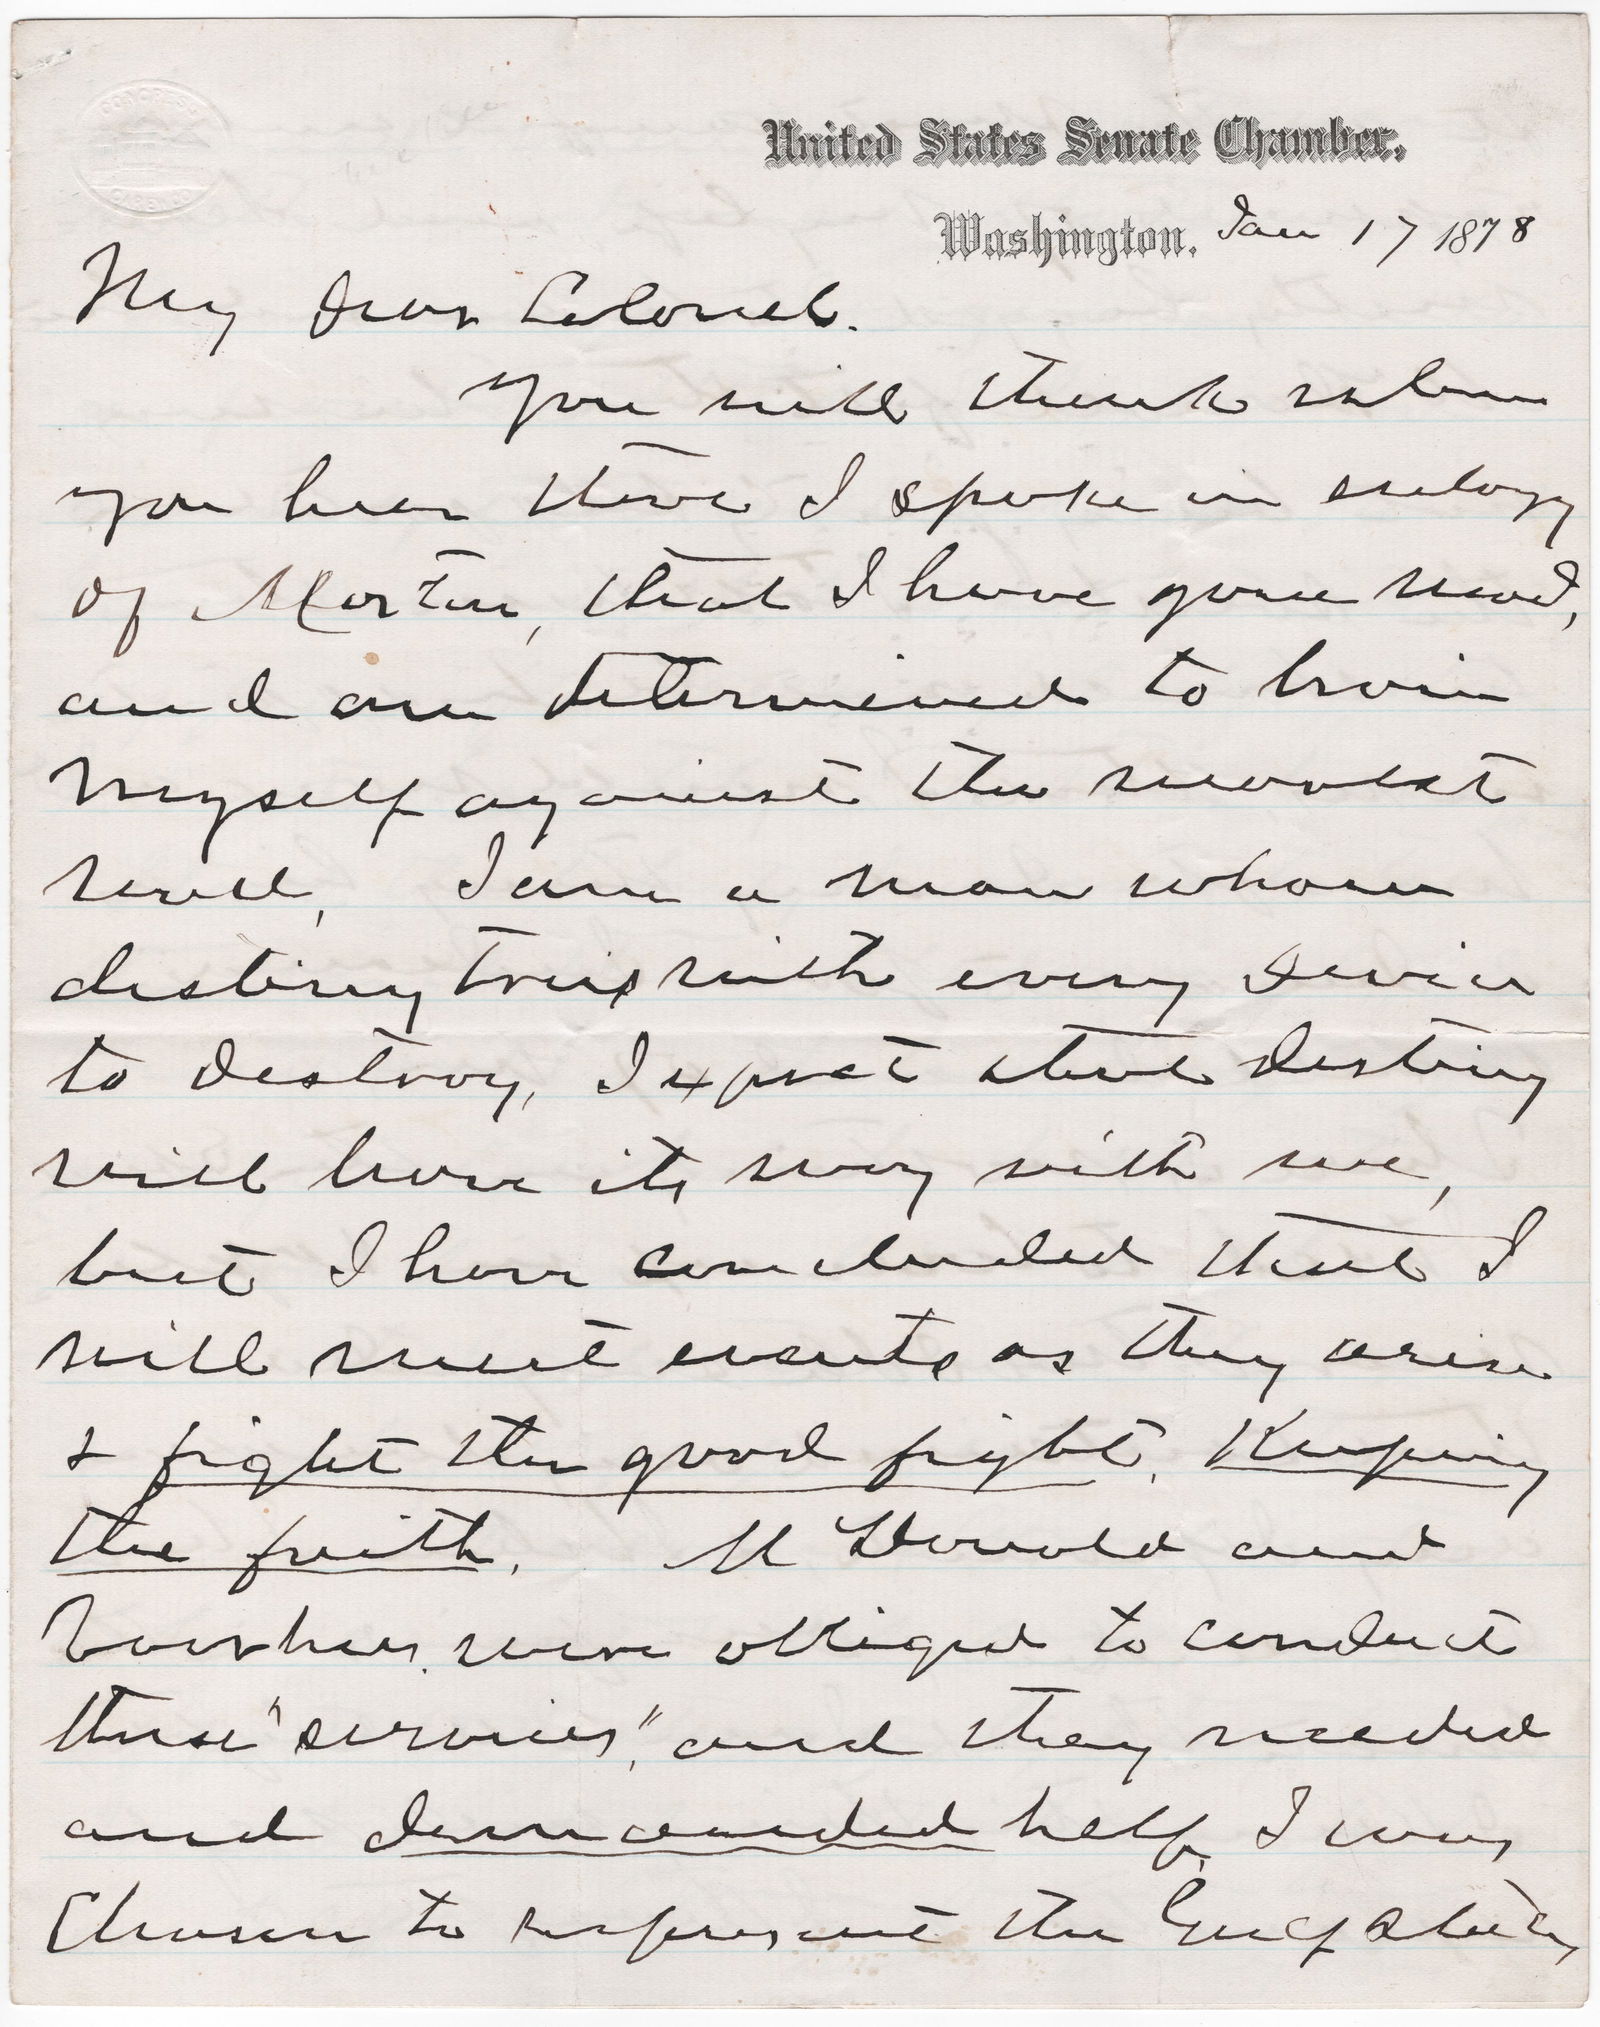 CONGRESS
CAREW CO
United States Senate Chamber,
Washington, Jan 17 1878
My dear Colonel.
You will think when
you hear that I spoke in eulogy
of Morton, that I have gone mad,
and am determined to brain
myself against the nearest
wall, I am a man whom
destiny tries with every device
to destroy, I expect that destiny
will have its way with me,
but I have concluded that I
will meet events as they arise
& fight the good fight, Keeping
the faith, McDonald and
Voorhees were obliged to conduct
these "services", and they needed
and demanded help, I was
Chosen to represent the Gulf States